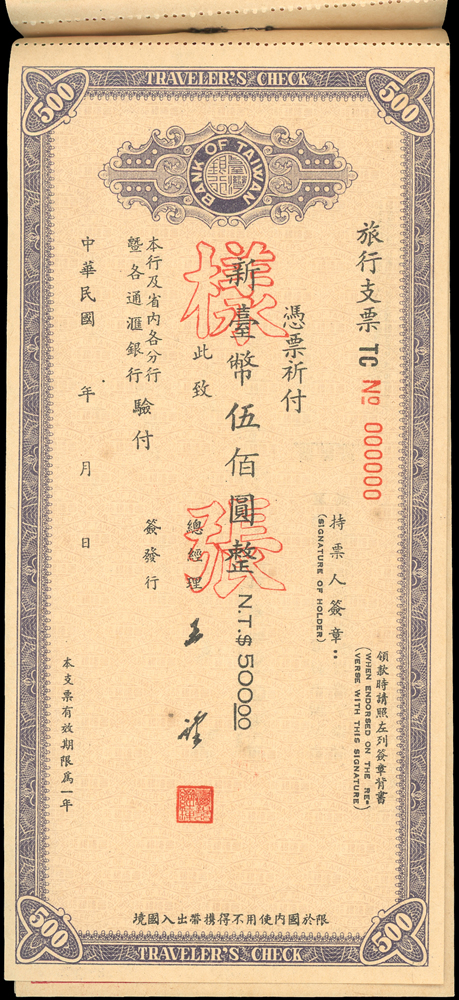 TRAVELER'S CHECK
500
500
BANK OF TAIWAN
臺灣銀行
旅行支票 TC No 000000
領款時請照左列簽章背書
(WHEN ENDORSED ON THE RE-
VERSE WITH THIS SIGNATURE)
持票人簽章:
(SIGNATURE OF HOLDER)
憑票祈付
新臺幣伍佰圓整 N.T.$ 500.00
樣張
此致
總經理
本行及省內各分行
暨各通滙銀行
驗付
簽發行
中華民國 年 月 日
本支票有效期限爲一年
境國入出帶攜得不用使內國於限
500
500
TRAVELER'S CHECK